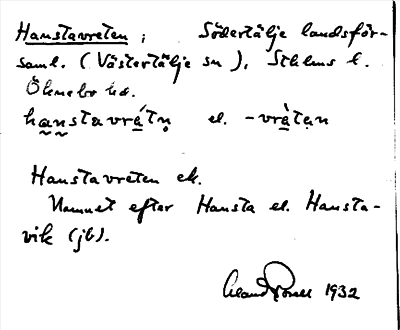 Hanstavreten; Södertälje landsför-
saml. (Västertälje sn), Sthlms l.
Öknebo hd.
hanstavrátn̥ el. -vràtən
Hanstavreten ek.
Namnet efter Hansta el. Hansta-
vik (jb).
1932